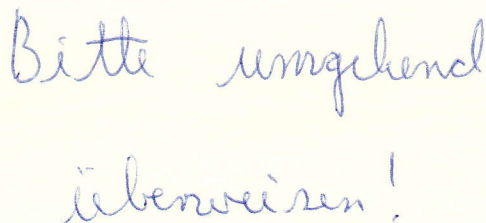 Bitte umgehend
überweisen!